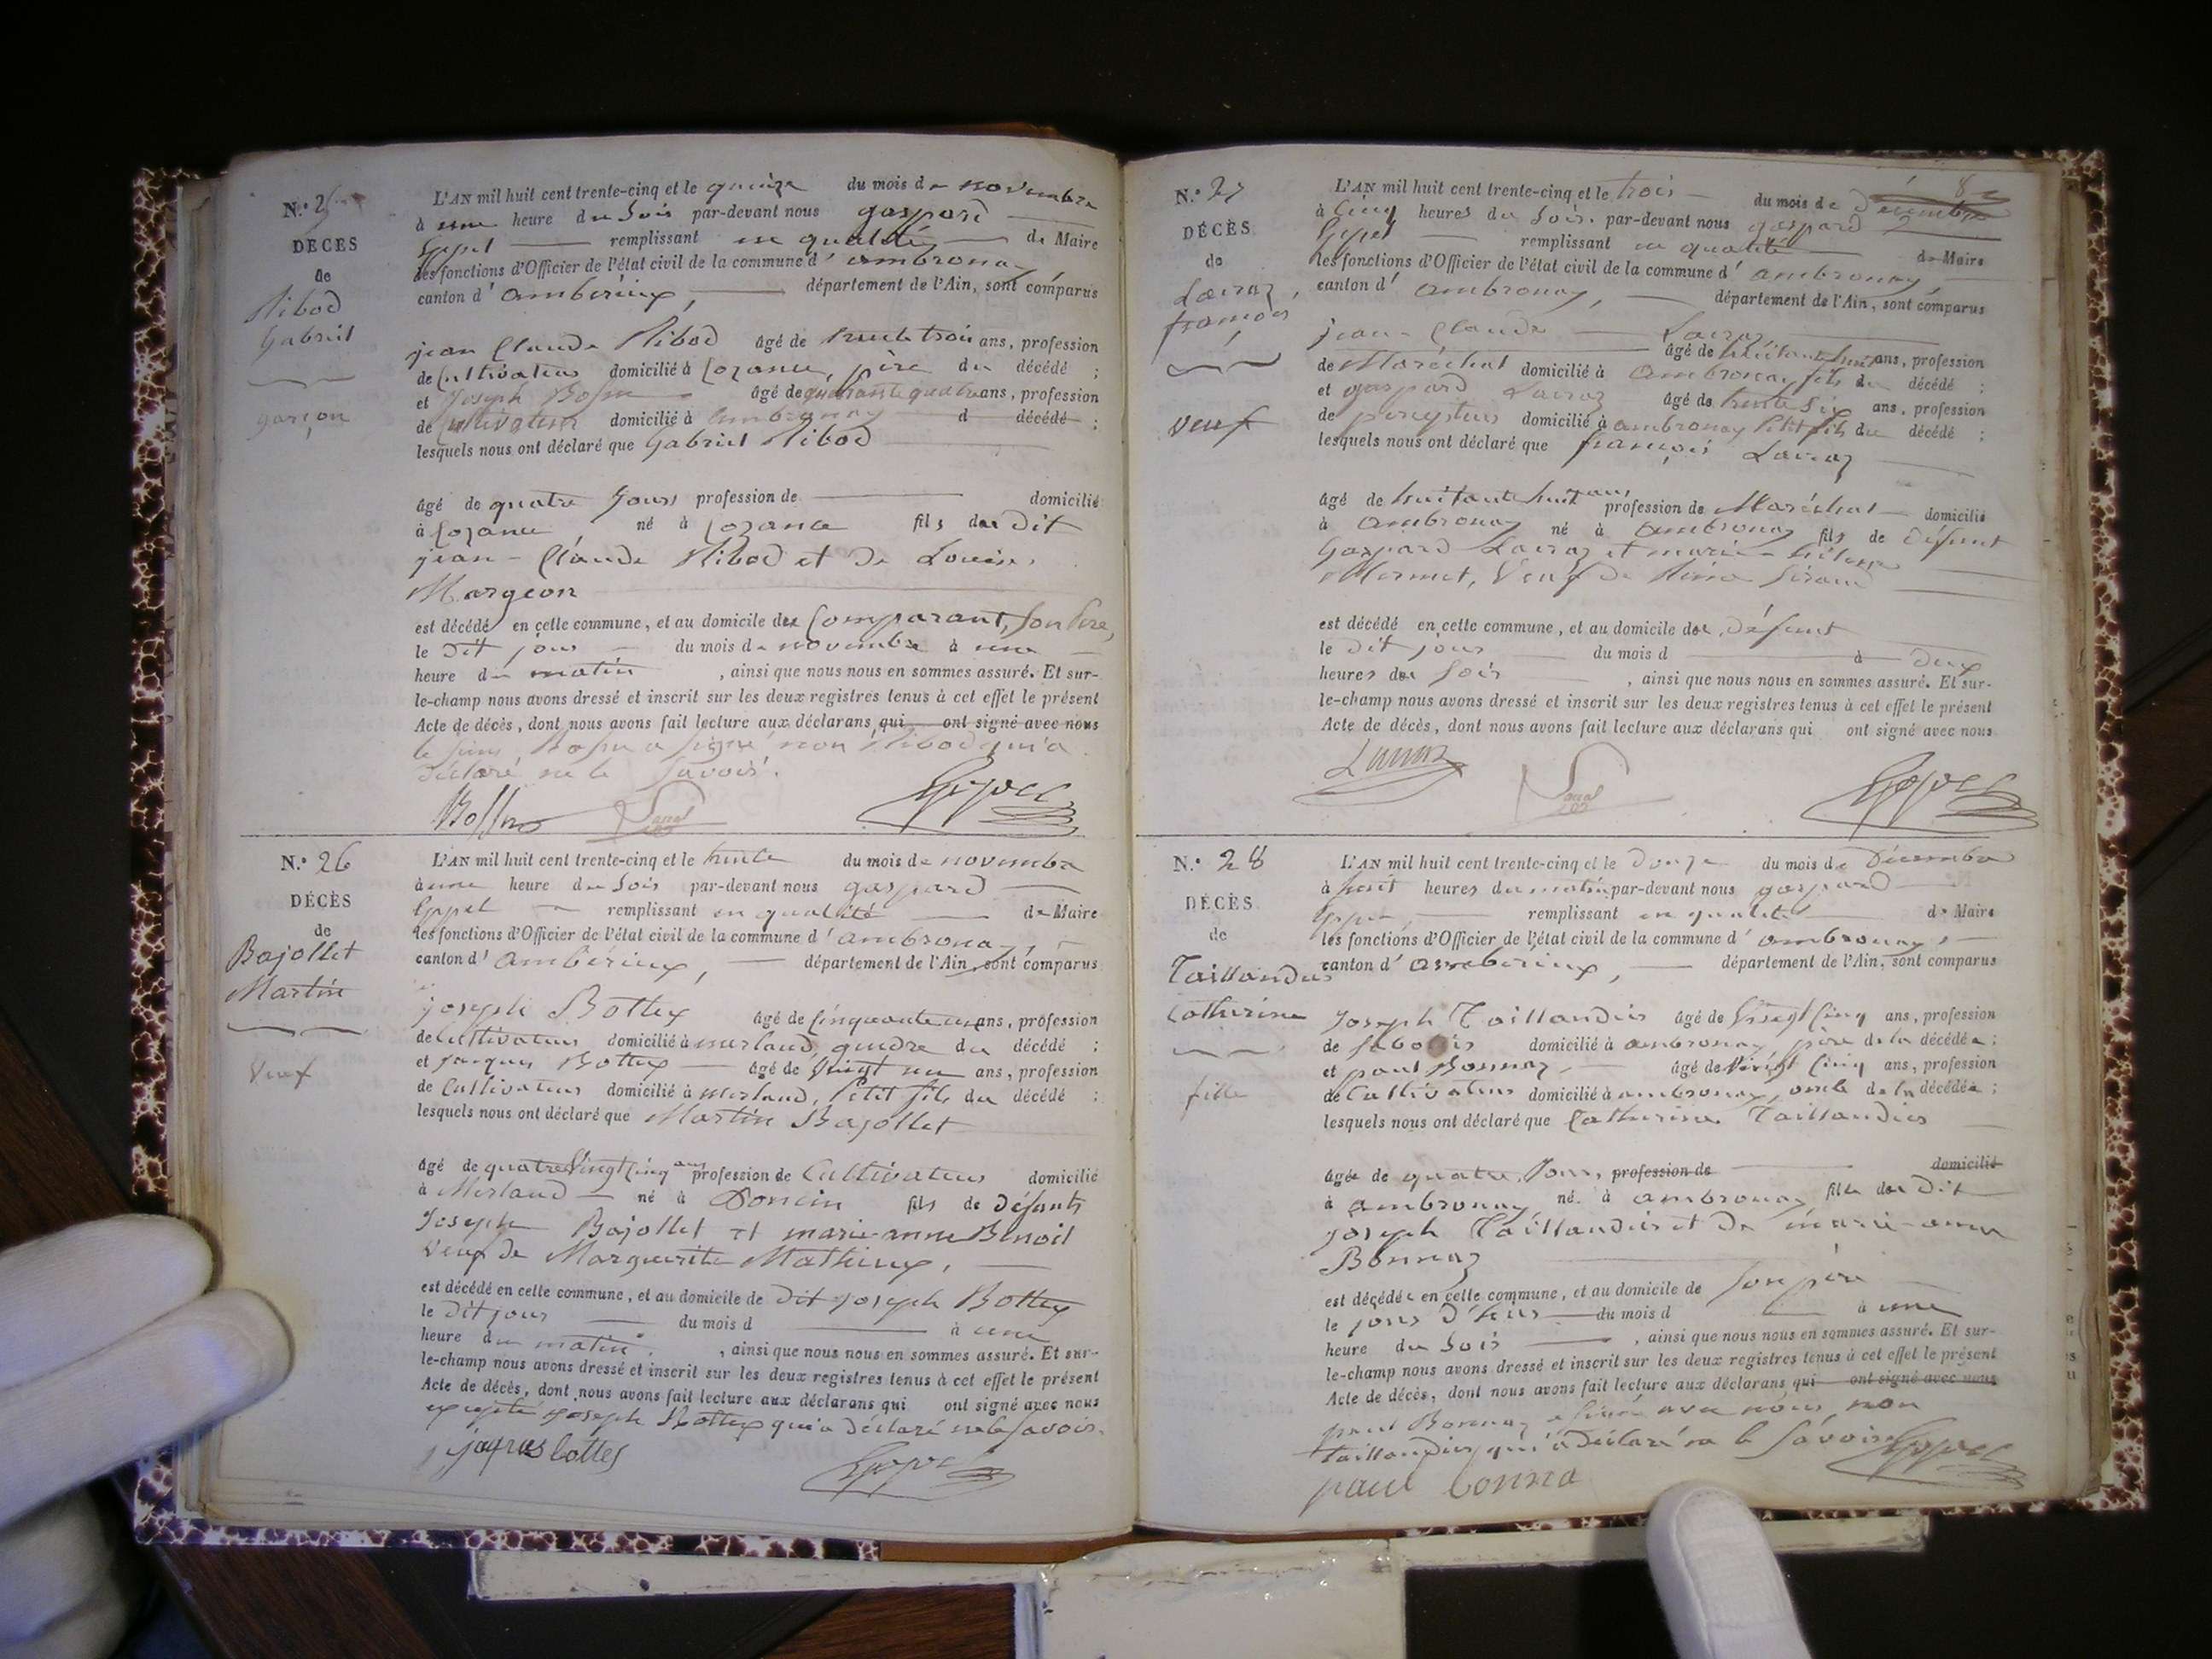 N.º 25
DÉCÈS
de
Ribod
Gabriel
garçon
L'AN mil huit cent trente-cinq et le quinze du mois de novembre
à une heure du soir par-devant nous gaspard
Geppel remplissant en qualité de Maire
les fonctions d'Officier de l'état civil de la commune d' ambronay
canton d' Ambérieux, département de l'Ain, sont comparus
jean Claude Ribod âgé de trente trois ans, profession
de Cultivateur domicilié à Cozance, père du décédé ;
et Joseph âgé de quarante quatre ans, profession
de Cultivateur domicilié à Ambronay d décédé ;
lesquels nous ont déclaré que Gabriel Ribod
âgé de quatre jours profession de domicilié
à Cozance né à Cozance fils du dit
jean-Claude Ribod et de Louise
Margeon
est décédé en cette commune, et au domicile du Comparant, son Père,
le dit jour du mois de novembre à une
heure du matin , ainsi que nous nous en sommes assuré. Et sur-
le-champ nous avons dressé et inscrit sur les deux registres tenus à cet effet le présent
Acte de décès, dont nous avons fait lecture aux déclarans qui ont signé avec nous
le sieur a signé non Ribod qui a
déclaré ne le savoir.
N.º 26
DÉCÈS
de
Bajollet
Martin
Veuf
L'AN mil huit cent trente-cinq et le trente du mois de novembre
à une heure du soir par-devant nous gaspard
Geppel remplissant en qualité de Maire
les fonctions d'Officier de l'état civil de la commune d' ambronay,
canton d' Ambérieux, département de l'Ain, sont comparus
joseph Bottex âgé de Cinquante un ans, profession
de Cultivateur domicilié à merland, gendre du décédé ;
et Jacques Bottex âgé de Vingt un ans, profession
de Cultivateur domicilié à Merland, Petit fils du décédé ;
lesquels nous ont déclaré que Martin Bajollet
âgé de quatre Vingt Cinq ans profession de Cultivateur domicilié
à Merland né à Doncin fils de défunts
Joseph Bajollet et marie-anne Benoit
Veuf de Marguerite Mathieux,
est décédé en cette commune, et au domicile de dit joseph Bottex
le dit jour du mois d à une
heure du matin , ainsi que nous nous en sommes assuré. Et sur-
le-champ nous avons dressé et inscrit sur les deux registres tenus à cet effet le présent
Acte de décès, dont nous avons fait lecture aux déclarans qui ont signé avec nous
excepté joseph Bottex qui a déclaré ne le savoir.
jaques bottes
8
N.º 27
DÉCÈS
de
Lairaz,
françois
Veuf
L'AN mil huit cent trente-cinq et le trois du mois de décembre
à Cinq heures du soir par-devant nous gaspard
Geppel remplissant en qualité de Maire
les fonctions d'Officier de l'état civil de la commune d' ambronay,
canton d' ambronay, département de l'Ain, sont comparus
jean-Claude Lairaz
âgé de ans, profession
de Maréchal domicilié à Ambronay fils du décédé ;
et gaspard Lairaz âgé de trente six ans, profession
de percepteur domicilié à ambronay Petit fils du décédé ;
lesquels nous ont déclaré que françois Lairaz
âgé de huitante huit ans profession de Maréchal domicilié
à Ambronay né à Ambronay fils de défunt
Gaspard Lairaz et marie-hélène
Mermet, Veuf de
est décédé en cette commune, et au domicile du défunt
le dit jour du mois d à deux
heures du soir , ainsi que nous nous en sommes assuré. Et sur-
le-champ nous avons dressé et inscrit sur les deux registres tenus à cet effet le présent
Acte de décès, dont nous avons fait lecture aux déclarans qui ont signé avec nous
N.º 28
DÉCÈS
de
Taillandier
Catherine
fille
L'AN mil huit cent trente-cinq et le douze du mois de Décembre
à huit heures du matin par-devant nous gaspard
Geppel remplissant en qualité de Maire
les fonctions d'Officier de l'état civil de la commune d' ambronay,
canton d' Ambérieux, département de l'Ain, sont comparus
Joseph Taillandier âgé de Vingt Cinq ans, profession
de domicilié à ambronay père de la décédée ;
et paul Bonnaz, âgé de Vingt Cinq ans, profession
de Cultivateur domicilié à ambronay, oncle de la décédée ;
lesquels nous ont déclaré que Catherine Taillandier
âgée de quatre Jours, profession de domicilié
à ambronay né à ambronay fille du dit
Joseph Taillandier et de marie-anne
Bonnaz
est décédée en cette commune, et au domicile de son père
le jour d'hier du mois d à une
heure du soir , ainsi que nous nous en sommes assuré. Et sur-
le-champ nous avons dressé et inscrit sur les deux registres tenus à cet effet le présent
Acte de décès, dont nous avons fait lecture aux déclarans qui ont signé avec nous
paul Bonnaz a signé avec nous non
taillandier qui a déclaré ne le Savoir
paul bonna